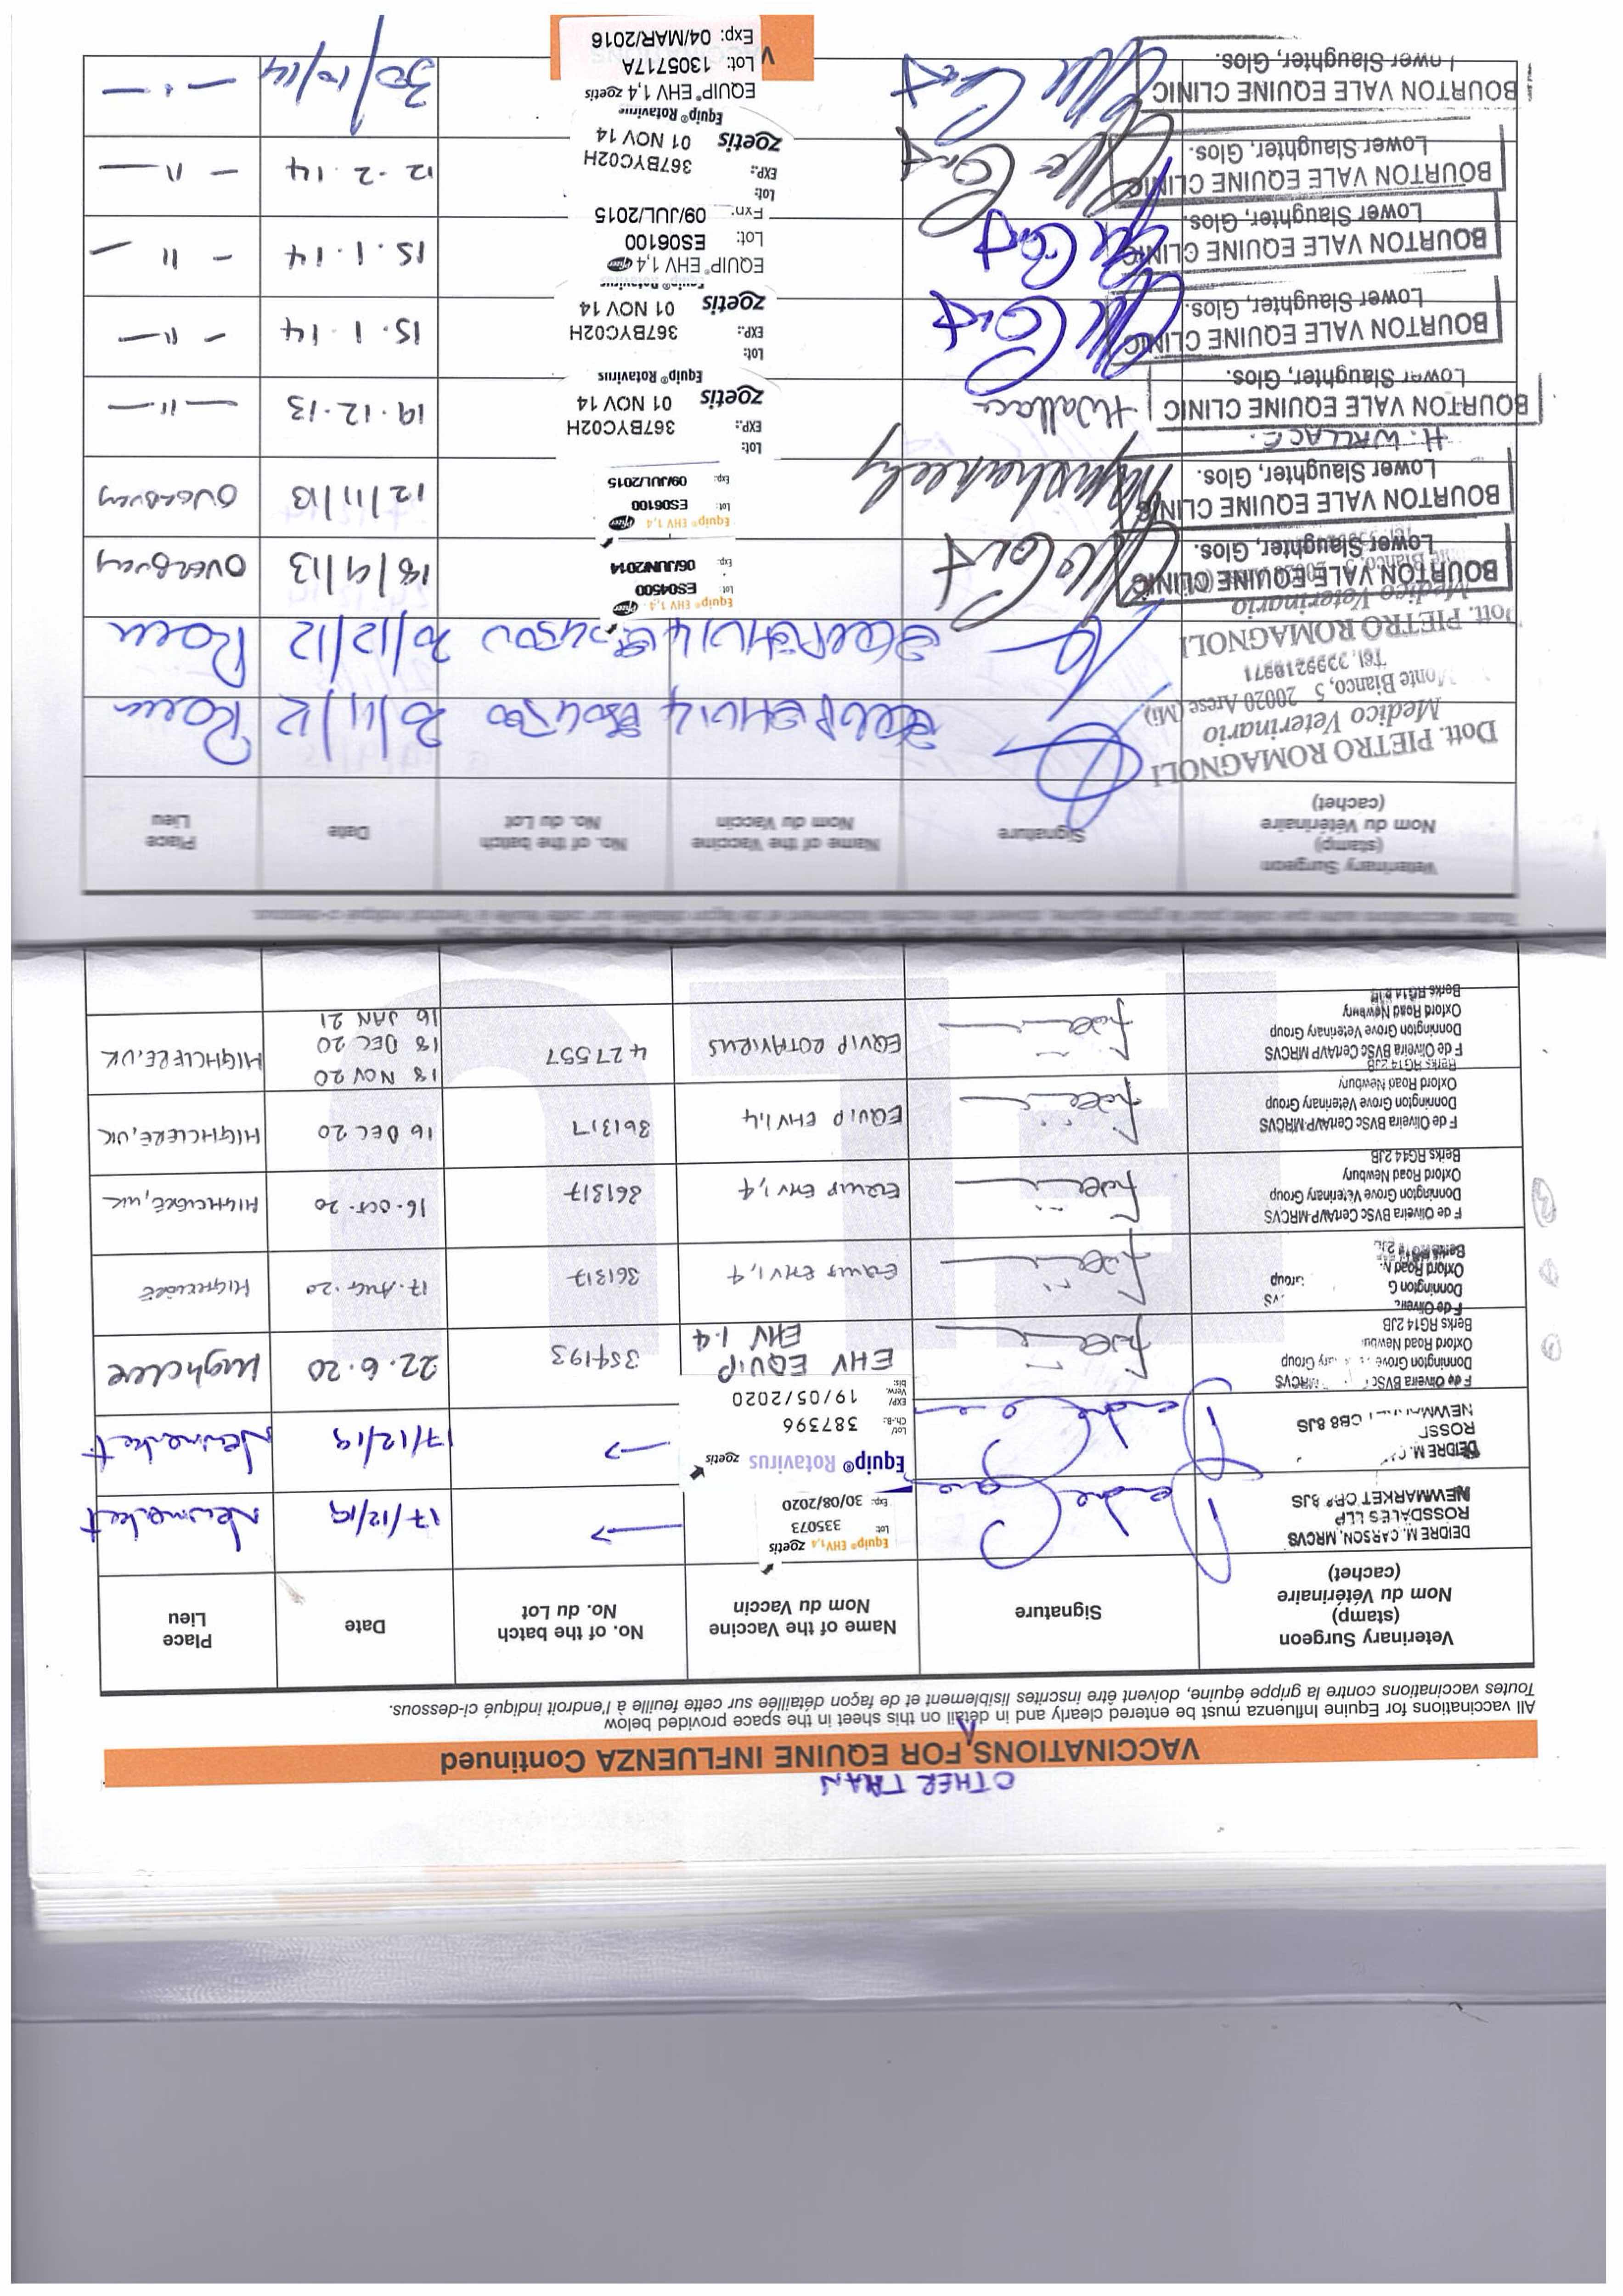 OTHER THAN
VACCINATIONS FOR EQUINE INFLUENZA Continued
All vaccinations for Equine Influenza must be entered clearly and in detail on this sheet in the space provided below
Toutes vaccinations contre la grippe équine, doivent être inscrites lisiblement et de façon détaillée sur cette feuille à l'endroit indiqué ci-dessous.
Veterinary Surgeon
(stamp)
Nom du Vétérinaire
(cachet)
Signature
Name of the Vaccine
Nom du Vaccin
No. of the batch
No. du Lot
Date
Place
Lieu
DEIDRE M. CARSON, MRCVS
ROSSDALES LLP
NEWMARKET CB8 8JS
Equip® EHV1,4 zoetis
Lot: 335073
Exp: 30/08/2020
17/12/19
Newmarket
DEIDRE M.
NEWMARKET CB8 8JS
Equip® Rotavirus zoetis
Lot/ Ch.-B.: 387396
EXP/ Verw. bis: 19/05/2020
17/12/19
Newmarket
F de Oliveira BVSc MRCVS
Donnington Grove Group
Oxford Road
Berks RG14 2JB
EHV EQUIP
EHV 1.4
354193
22.6.20
Highclere
F de Oliveir
Donnington G
Oxford Road
EQUIP EHV 1,4
361317
17. AUG. 20
HIGHCLERE
F de Oliveira BVSc CertAVP MRCVS
Donnington Grove Veterinary Group
Oxford Road Newbury
Berks RG14 2JB
EQUIP EHV 1,4
361317
16. OCT. 20
HIGHCLERE, UK
F de Oliveira BVSc CertAVP MRCVS
Donnington Grove Veterinary Group
Oxford Road Newbury
Berks RG14 2JB
EQUIP EHV 1,4
361317
16 DEC 20
HIGHCLERE, UK
F de Oliveira BVSc CertAVP MRCVS
Donnington Grove Veterinary Group
Oxford Road Newbury
Berks RG14 2JB
EQUIP ROTAVIRUS
427557
18 NOV 20
18 DEC 20
16 JAN 21
HIGHCLERE, UK
Veterinary Surgeon
(stamp)
Nom du Vétérinaire
(cachet)
Signature
Name of the Vaccine
Nom du Vaccin
No. of the batch
No. du Lot
Date
Place
Lieu
Dott. PIETRO ROMAGNOLI
Medico Veterinario
Monte Bianco, 5 20020 Arese (Mi)
Dott. PIETRO ROMAGNOLI
Medico Veterinario
20/12/12
BOURTON VALE EQUINE CLINIC
Lower Slaughter, Glos.
Equip® EHV 1,4 Pfizer
Lot ES04500
Exp: 06JUN2014
18/9/13
OVERBURY
BOURTON VALE EQUINE CLINIC
Lower Slaughter, Glos.
Equip® EHV 1,4 Pfizer
Lot: ES06100
Exp: 09JUL2015
12/11/13
OVERBURY
H. WALLACE.
BOURTON VALE EQUINE CLINIC
Lower Slaughter, Glos.
HWallace
Lot: 367BYC02H
EXP.: 01 NOV 14
zoetis
Equip® Rotavirus
19.12.13
— 11 —
BOURTON VALE EQUINE CLINIC
Lower Slaughter, Glos.
Lot: 367BYC02H
EXP.: 01 NOV 14
zoetis
Equip® Rotavirus
15.1.14
— 11 —
BOURTON VALE EQUINE CLINIC
Lower Slaughter, Glos.
EQUIP® EHV 1,4 Pfizer
Lot: ES06100
Exp: 09/JUL/2015
15.1.14
— 11 —
BOURTON VALE EQUINE CLINIC
Lower Slaughter, Glos.
Lot: 367BYC02H
EXP.: 01 NOV 14
zoetis
Equip® Rotavirus
12.2.14
— 11 —
BOURTON VALE EQUINE CLINIC
Lower Slaughter, Glos.
EQUIP® EHV 1,4 zoetis
Lot: 1305717A
Exp: 04/MAR/2016
30/10/14
— 11 —